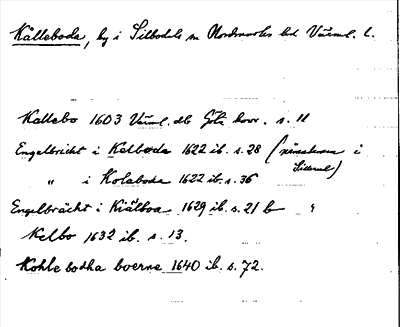 Kålleboda, by i Silbodals sn Nordmarks hd Värml. l.
Kallebo 1603 Värml. db Göta hovr. s. 11
Engelbricht i Kelboda 1622 ib. s. 28 (
i
" i Kolaboda 1622 ib. s. 36
Engelbrächt i Kiälboa 1629 ib. s. 21 b
Kelbo 1632 ib. s. 13.
Kohle bodha boerne 1640 ib. s. 72.